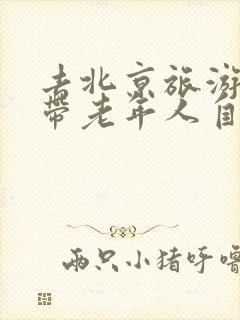 去北京旅游
带老年人自
两只小猪呼噜